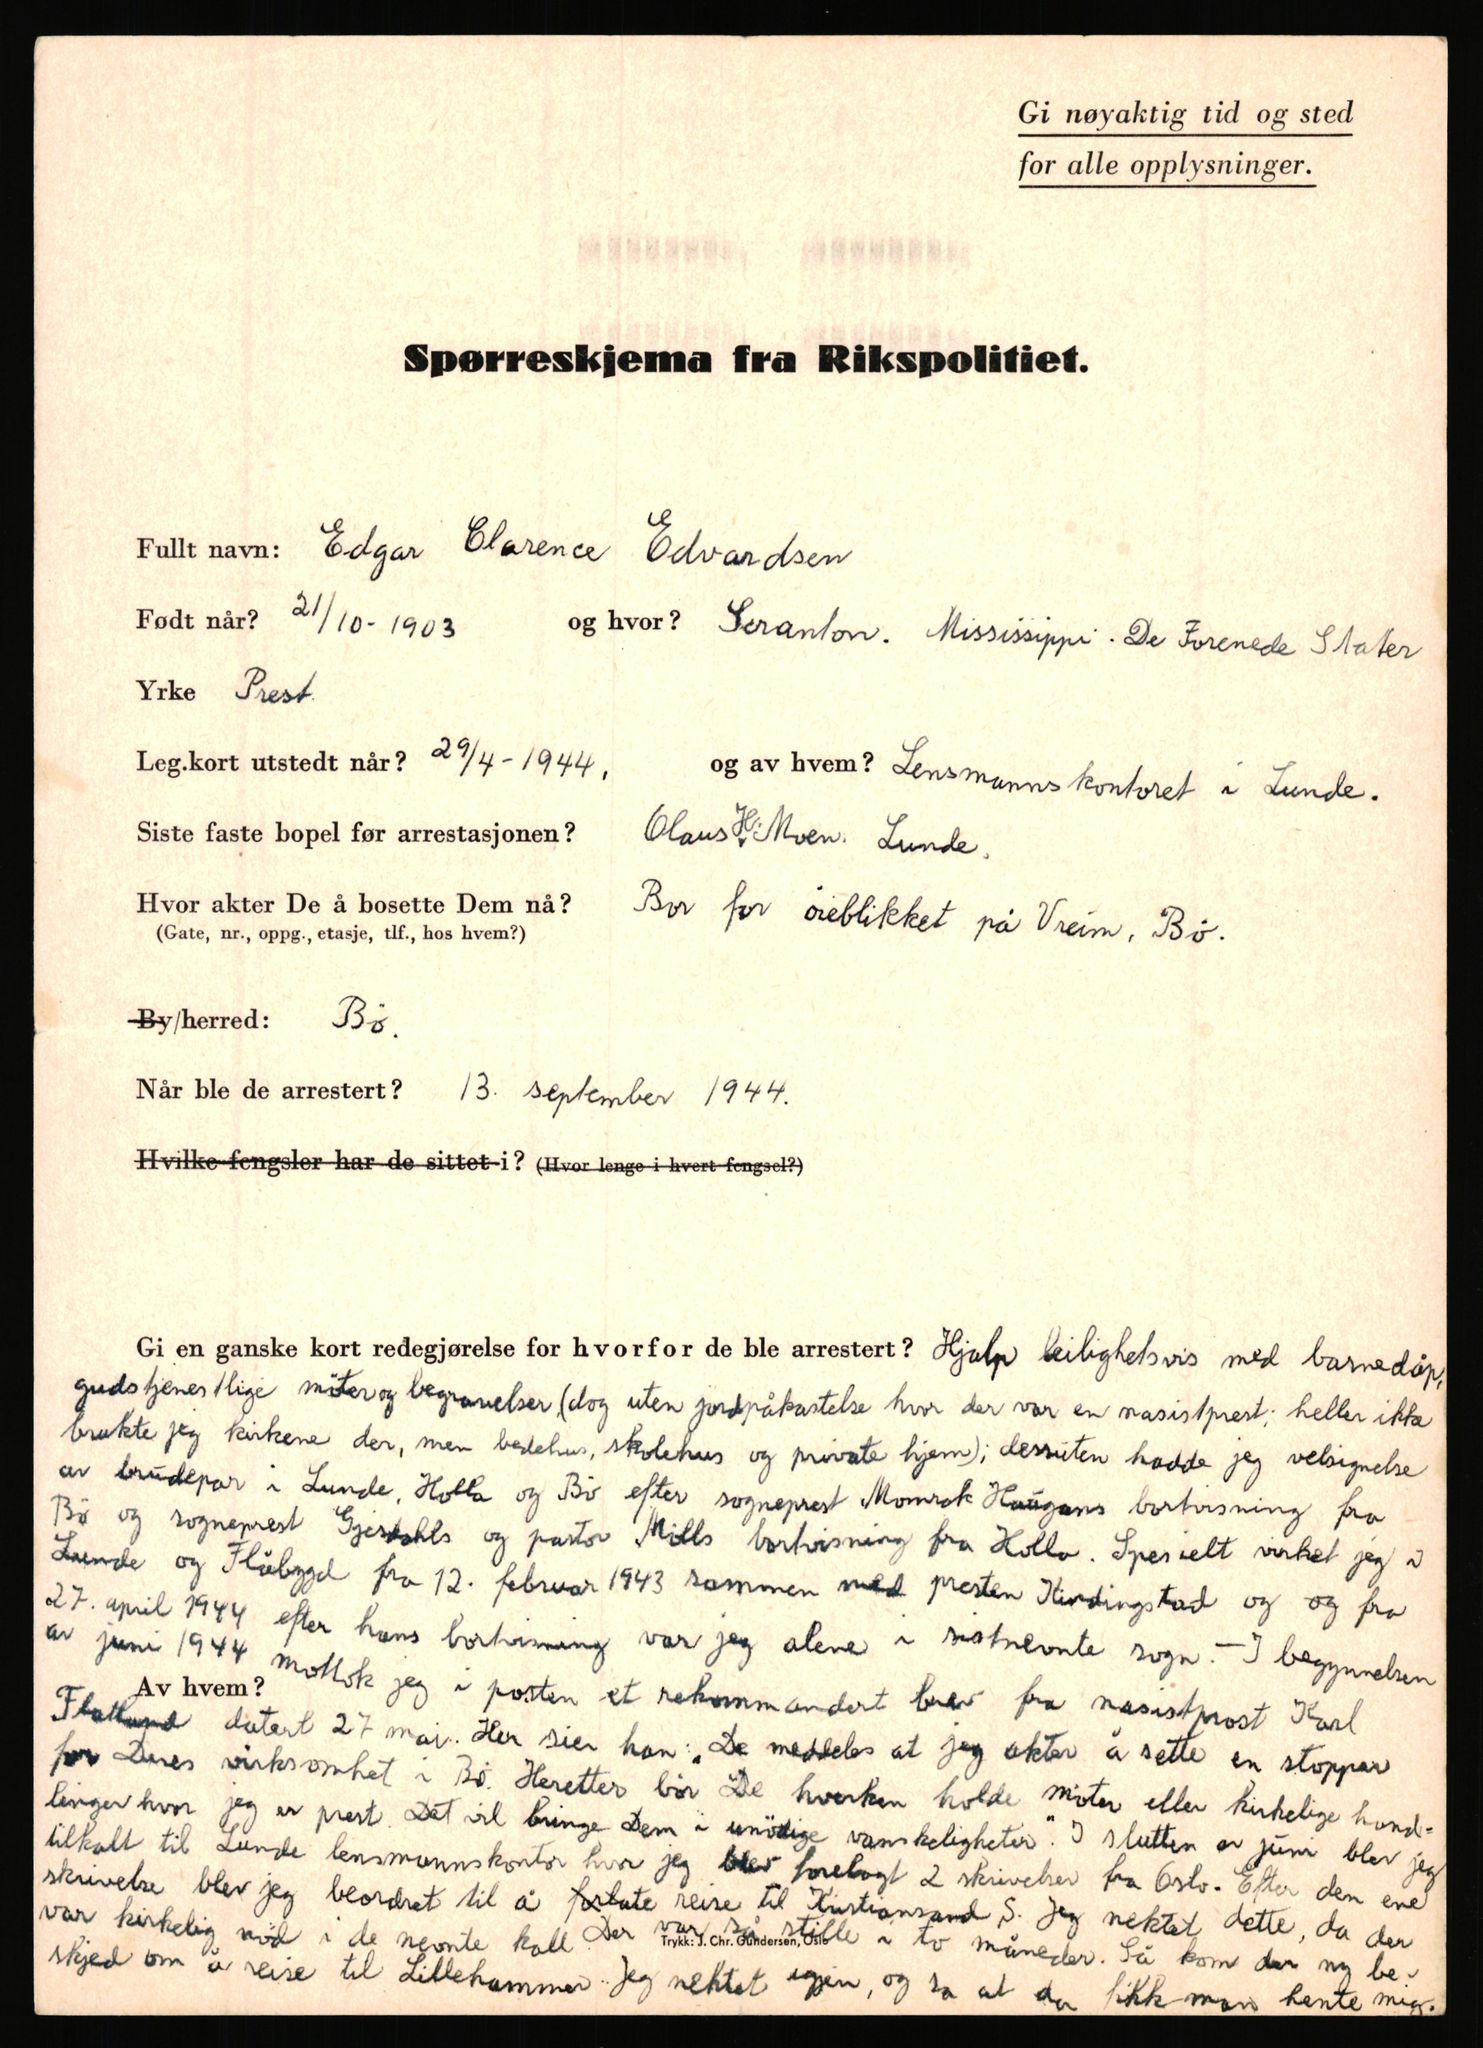 Gi nøyaktig tid og sted
for alle opplysninger.
Spørreskjema fra Rikspolitiet.
Fullt navn: Edgar Clarence Edvardsen
Født når? 21/10-1903 og hvor? Scranton. Mississippi. De Forenede Stater
Yrke Prest
Leg.kort utstedt når? 29/4-1944, og av hvem? Lensmannskontoret i Lunde.
Siste faste bopel før arrestasjonen? Olaus H. Moen. Lunde.
Hvor akter De å bosette Dem nå? Bor for öieblikket på Vreim, Bö.
(Gate, nr., oppg., etasje, tlf., hos hvem?)
By/herred: Bö.
Når ble de arrestert? 13. september 1944.
Hvilke fengsler har de sittet i? (Hvor lenge i hvert fengsel?)
Gi en ganske kort redegjørelse for hvorfor de ble arrestert? Hjalp leilighetsvis med barnedåp,
gudstjenestlige möter og begravelser, (dog uten jordpåkastelse hvor der var en nasistprest; heller ikke
brukte jeg kirkene der, men bedehus, skolehus og private hjem); dessuten hadde jeg velsignelse
av brudepar i Lunde, Holla og Bö efter sogneprest Momrak Haugans bortvisning fra
Bö og sogneprest Gjerdahls og pastor Mills bortvisning fra Holla. Spesielt virket jeg i
Lunde og Flåbygd fra 12. februar 1943 sammen med presten Kindingstad og og fra
27. april 1944 efter hans bortvisning var jeg alene i sistnevnte sogn. - I begynnelsen
av juni 1944 mottok jeg i posten et rekommandert brev fra nasistprost Karl
Av hvem?
Flatland datert 27 mai. Her sier han: "De meddeles at jeg akter å sette en stoppar
for Deres virksomhet i Bö. Heretter bör De hverken holde möter eller kirkelige hand-
linger hvor jeg er prest. Det vil bringe Dem i unödige vanskeligheter". I slutten av juni blev jeg
tilkalt til Lunde lensmannskontor hvor jeg blev forelagt 2 skrivelser fra Oslo. Efter den ene
skrivelse blev jeg beordret til å forlate reise til Kristiansand S. Jeg nektet dette, da der
var kirkelig nöd i de nevnte kall. Der var så stille i to måneder. Så kom der ny be-
Trykk: J. Chr. Gundersen, Oslo
skjed om å reise til Lillehammer. Jeg nektet igjen, og sa at da fikk man hente mig.